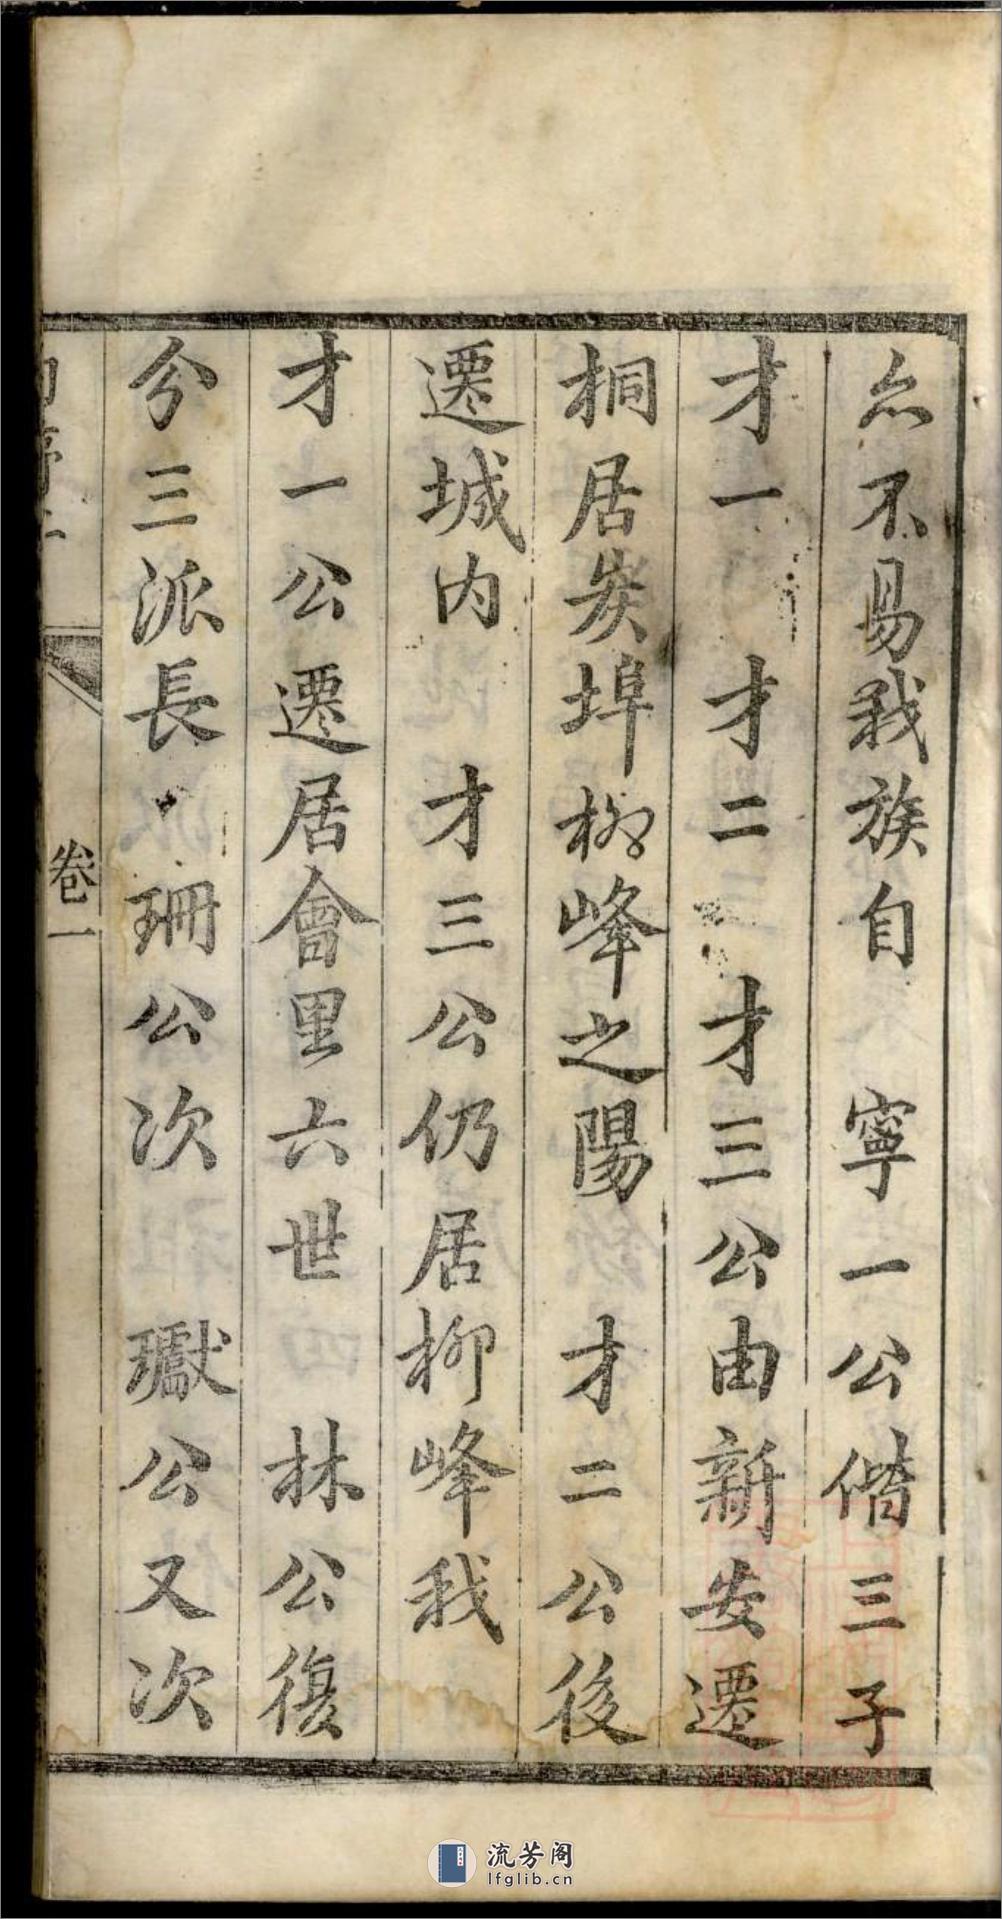 亦不易我族自　寧一公偕三子
才一　才二　才三公由新安遷
桐居矦埠栁峰之陽　才二公後
遷城内　才三公仍居柳峰我
才一公遷居會里六世　林公復
分三派長　珊公次　瓛公又次
卷一
流芳阁
lfglib.cn